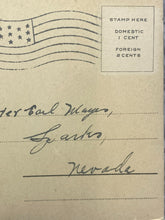 STAMP HERE
DOMESTIC
1 CENT
FOREIGN
2 CENTS
ter Earl Mayes,
Sparks,
Nevada